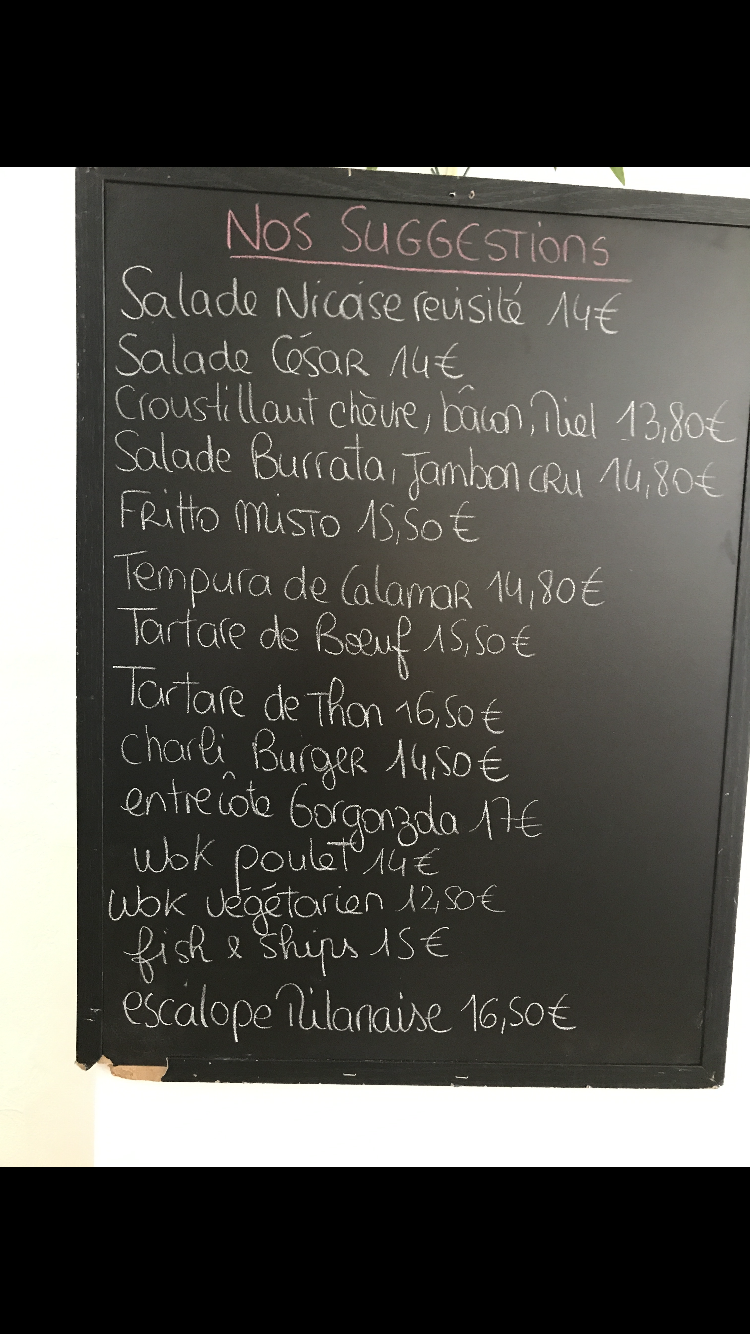 NOS SUGGESTIONS
Salade Nicoise revisité 14€
Salade César 14€
Croustillant chèvre, bâcon, Miel 13,80€
Salade Burrata, Jambon cru 14,80€
Fritto misto 15,50€
Tempura de Calamar 14,80€
Tartare de Bœuf 15,50€
Tartare de Thon 16,50€
charli Burger 14,50€
entrecôte Gorgonzola 17€
Wok poulet 14€
Wok végétarien 12,50€
fish & ships 15€
escalope Milanaise 16,50€